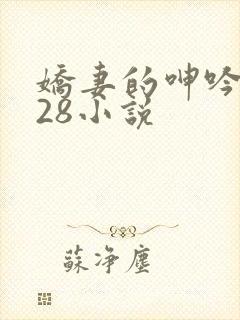 嬌妻的呻吟
28小說
蘇净塵